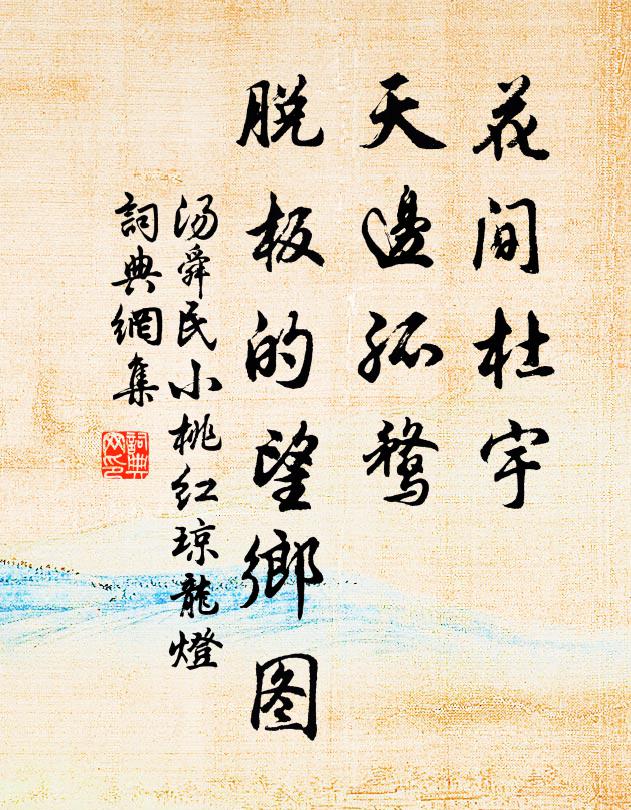 花间杜宇
天邊孤鶩
脱板的望鄉图
汤舜民小桃红琼龍燈
詞典網集
詞典网印